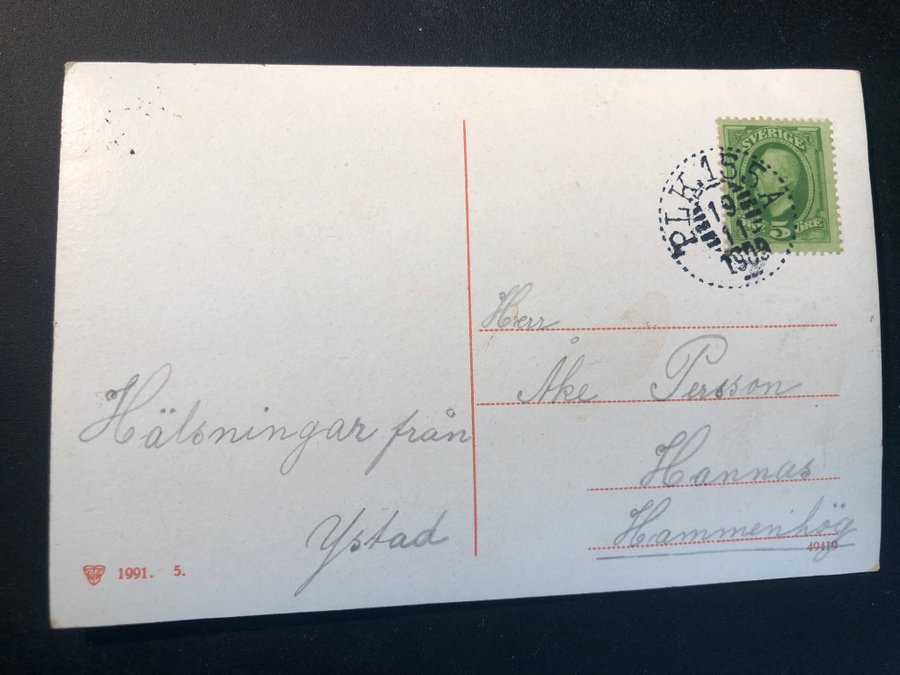 SVERIGE
5 ÖRE
PLK 155 A
19
11
1909
Herr
Åke Persson
Hannas
Hammenhög
49419
Hälsningar från
Ystad
1991. 5.